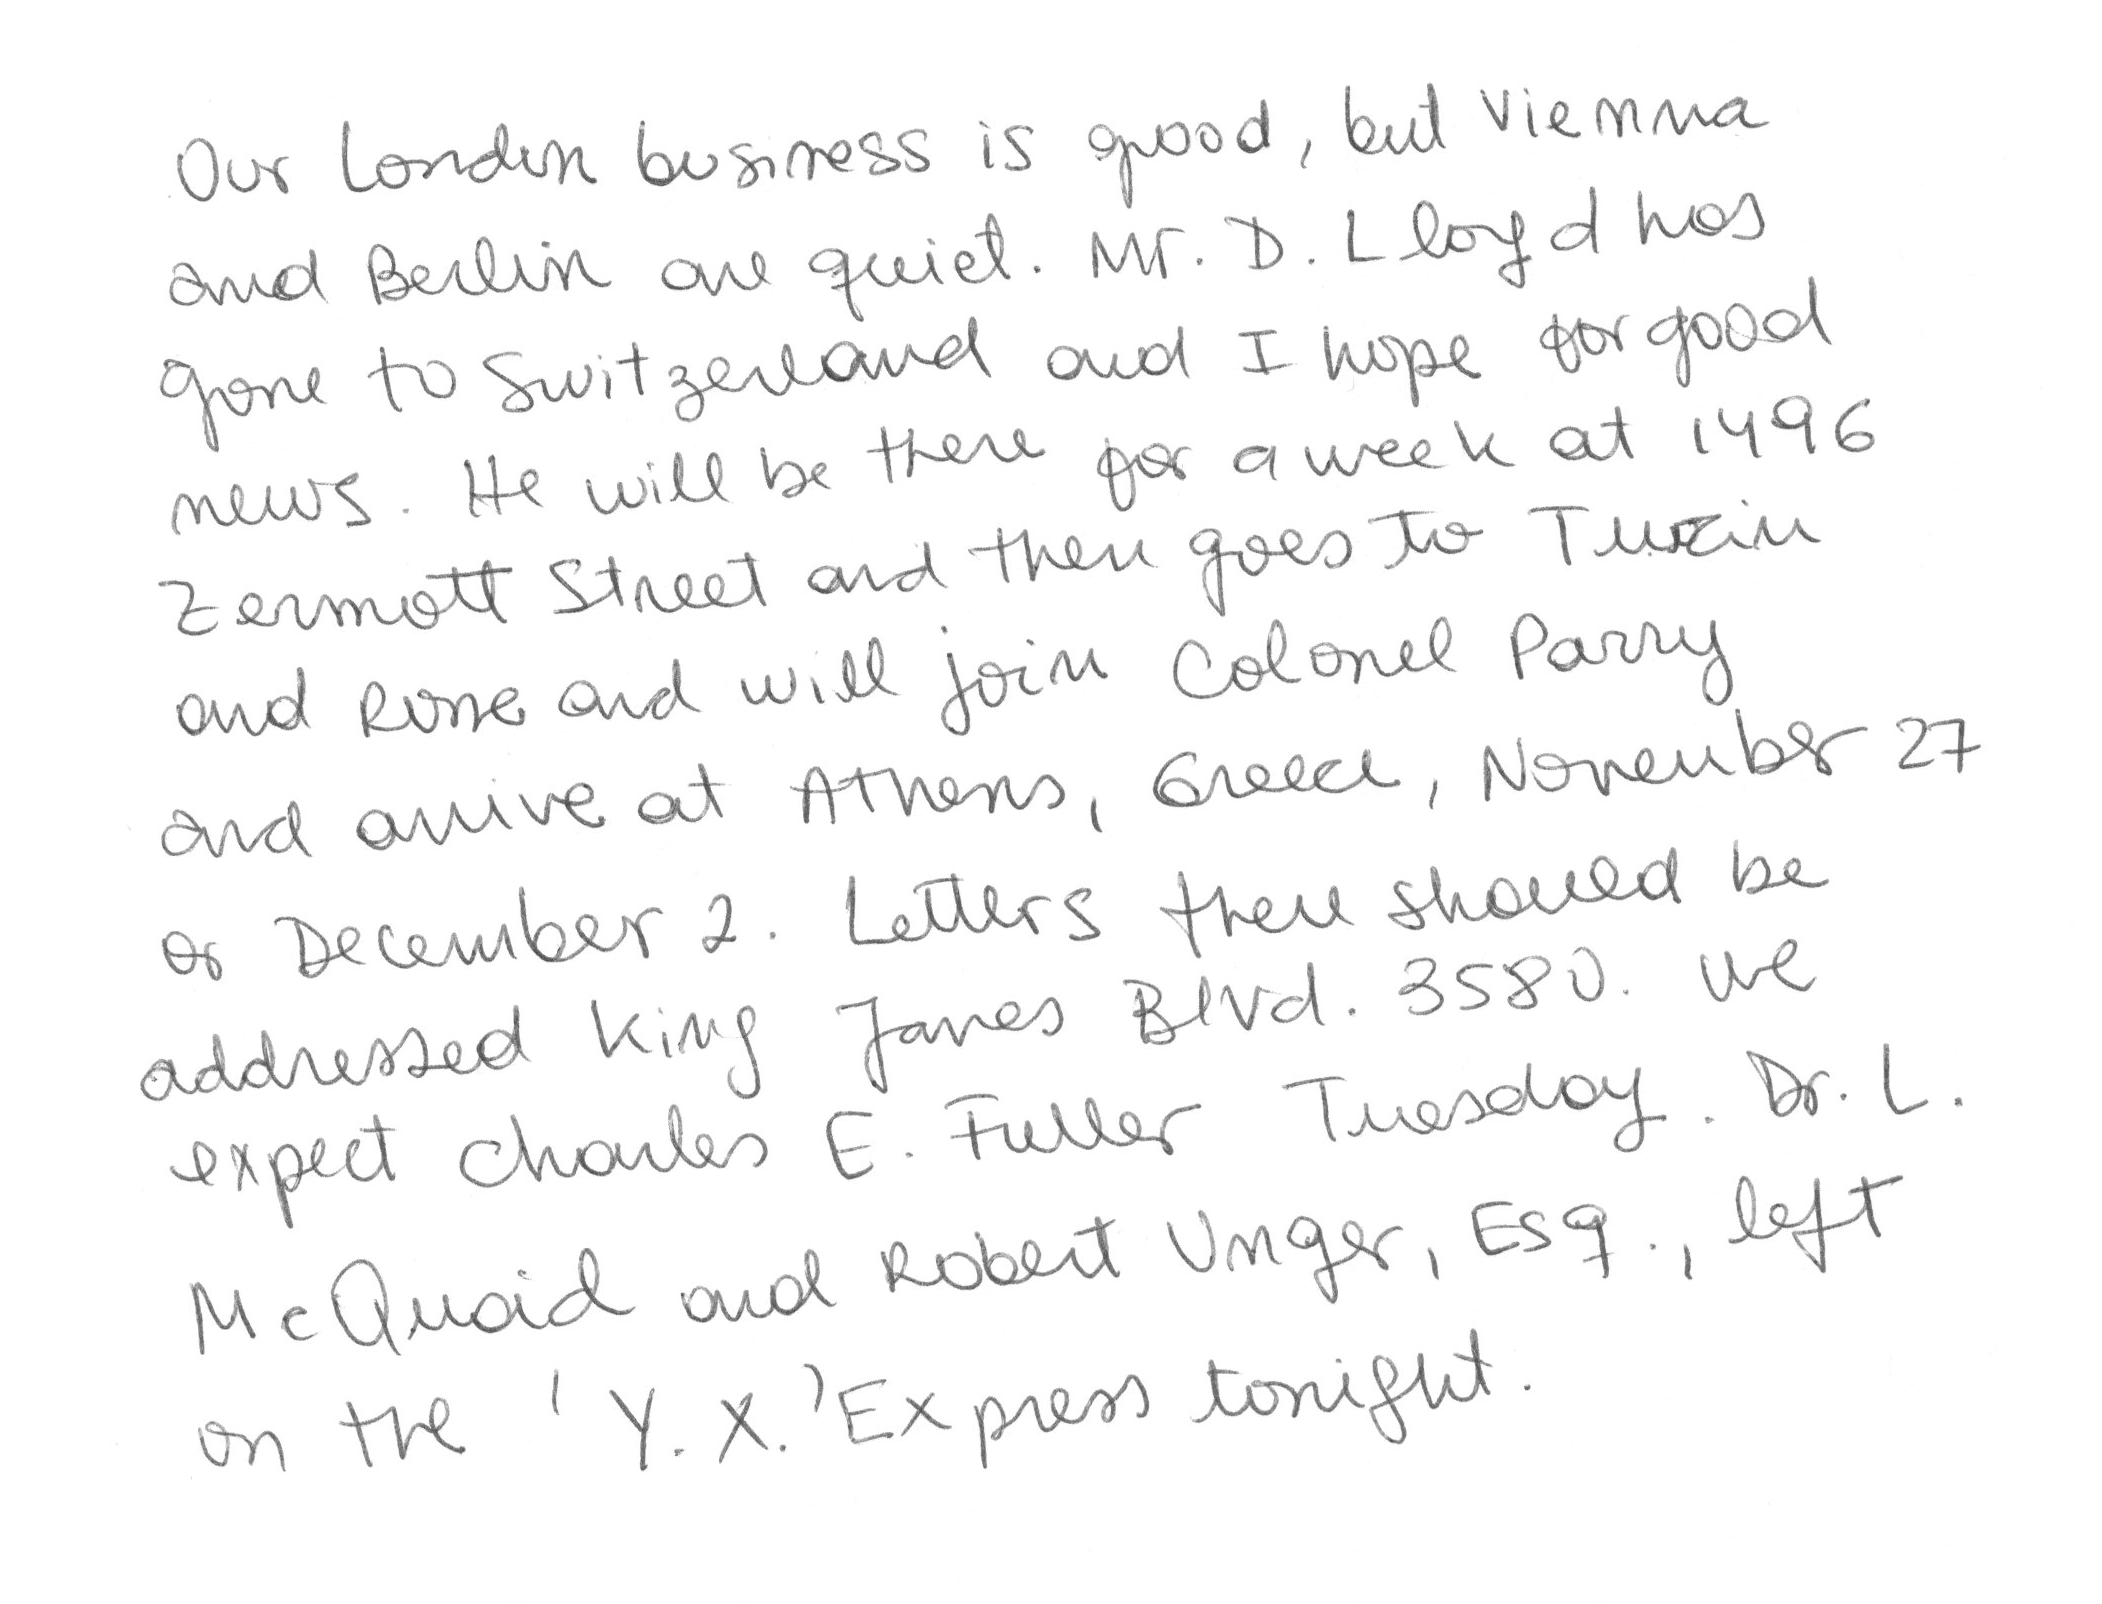 Our London business is good, but Vienna
and Berlin are quiet. Mr. D. Lloyd has
gone to Switzerland and I hope for good
news. He will be there for a week at 1496
Zermott Street and then goes to Turin
and Rome and will join Colonel Parry
and arrive at Athens, Greece, November 27
or December 2. Letters there should be
addressed King James Blvd. 3580. We
expect Charles E. Fuller Tuesday. Dr. L.
McQuaid and Robert Unger, Esq., left
on the 'Y. X.' Express tonight.